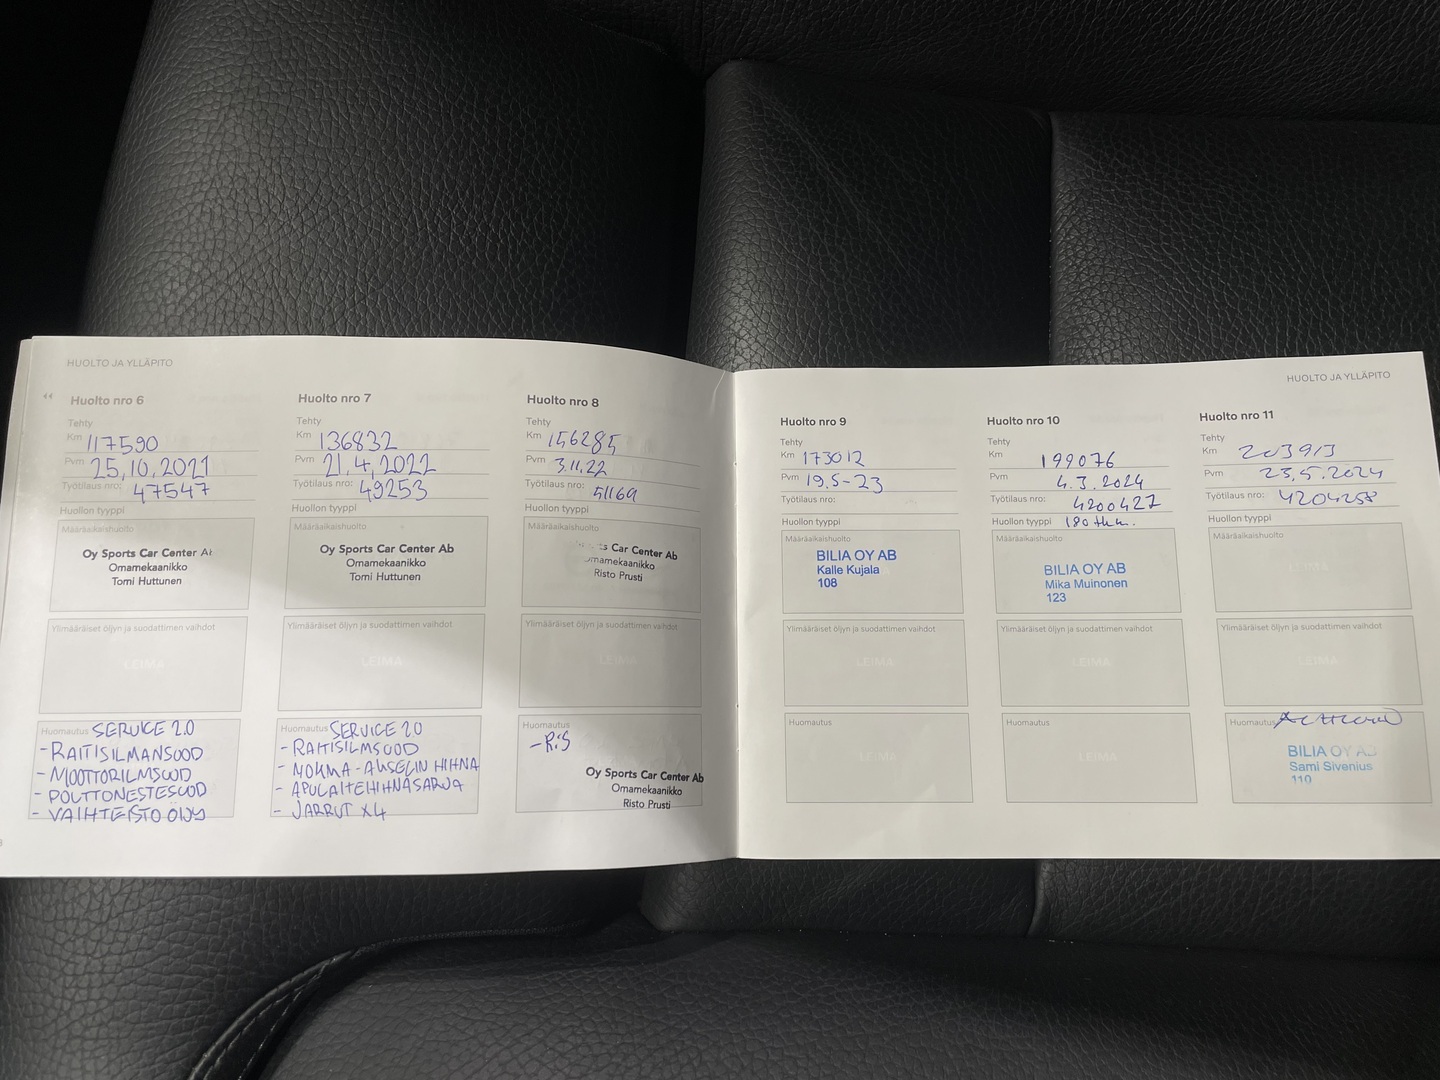 HUOLTO JA YLLÄPITO
Huolto nro 6
Tehty
Km 117590
Pvm 25.10.2021
Työtilaus nro: 47547
Huollon tyyppi
Määräaikaishuolto
Oy Sports Car Center Ab
Omamekaanikko
Tomi Huttunen
Ylimääräiset öljyn ja suodattimen vaihdot
LEIMA
Huomautus SERVICE 2.0
- RAITISILMANSUOD
- MOOTTORILMSUOD
- POLTTONESTESUOD
- VAIHTEISTO ÖLJY
Huolto nro 7
Tehty
Km 136832
Pvm 21.4.2022
Työtilaus nro: 49253
Huollon tyyppi
Määräaikaishuolto
Oy Sports Car Center Ab
Omamekaanikko
Tomi Huttunen
Ylimääräiset öljyn ja suodattimen vaihdot
LEIMA
Huomautus SERVICE 2.0
- RAITISILMSUOD
- HIHNA
- APULAITEHIHNASARJA
- JARRUT X4
Huolto nro 8
Tehty
Km 156285
Pvm 3.11.22
Työtilaus nro: 51169
Huollon tyyppi
Määräaikaishuolto
Car Center Ab
Omamekaanikko
Risto Prusti
Ylimääräiset öljyn ja suodattimen vaihdot
LEIMA
Huomautus
- RiS
Oy Sports Car Center Ab
Omamekaanikko
Risto Prusti
HUOLTO JA YLLÄPITO
Huolto nro 9
Tehty
Km 173012
Pvm 19.5-23
Työtilaus nro:
Huollon tyyppi
Määräaikaishuolto
BILIA OY AB
Kalle Kujala
108
Ylimääräiset öljyn ja suodattimen vaihdot
LEIMA
Huomautus
LEIMA
Huolto nro 10
Tehty
Km 199076
Pvm 4.3.2024
Työtilaus nro: 4200427
Huollon tyyppi 180 tkm.
Määräaikaishuolto
BILIA OY AB
Mika Muinonen
123
Ylimääräiset öljyn ja suodattimen vaihdot
LEIMA
Huomautus
LEIMA
Huolto nro 11
Tehty
Km 203913
Pvm 23.5.2024
Työtilaus nro: 4204258
Huollon tyyppi
Määräaikaishuolto
LEIMA
Ylimääräiset öljyn ja suodattimen vaihdot
LEIMA
Huomautus
BILIA OY AB
Sami Sivenius
110